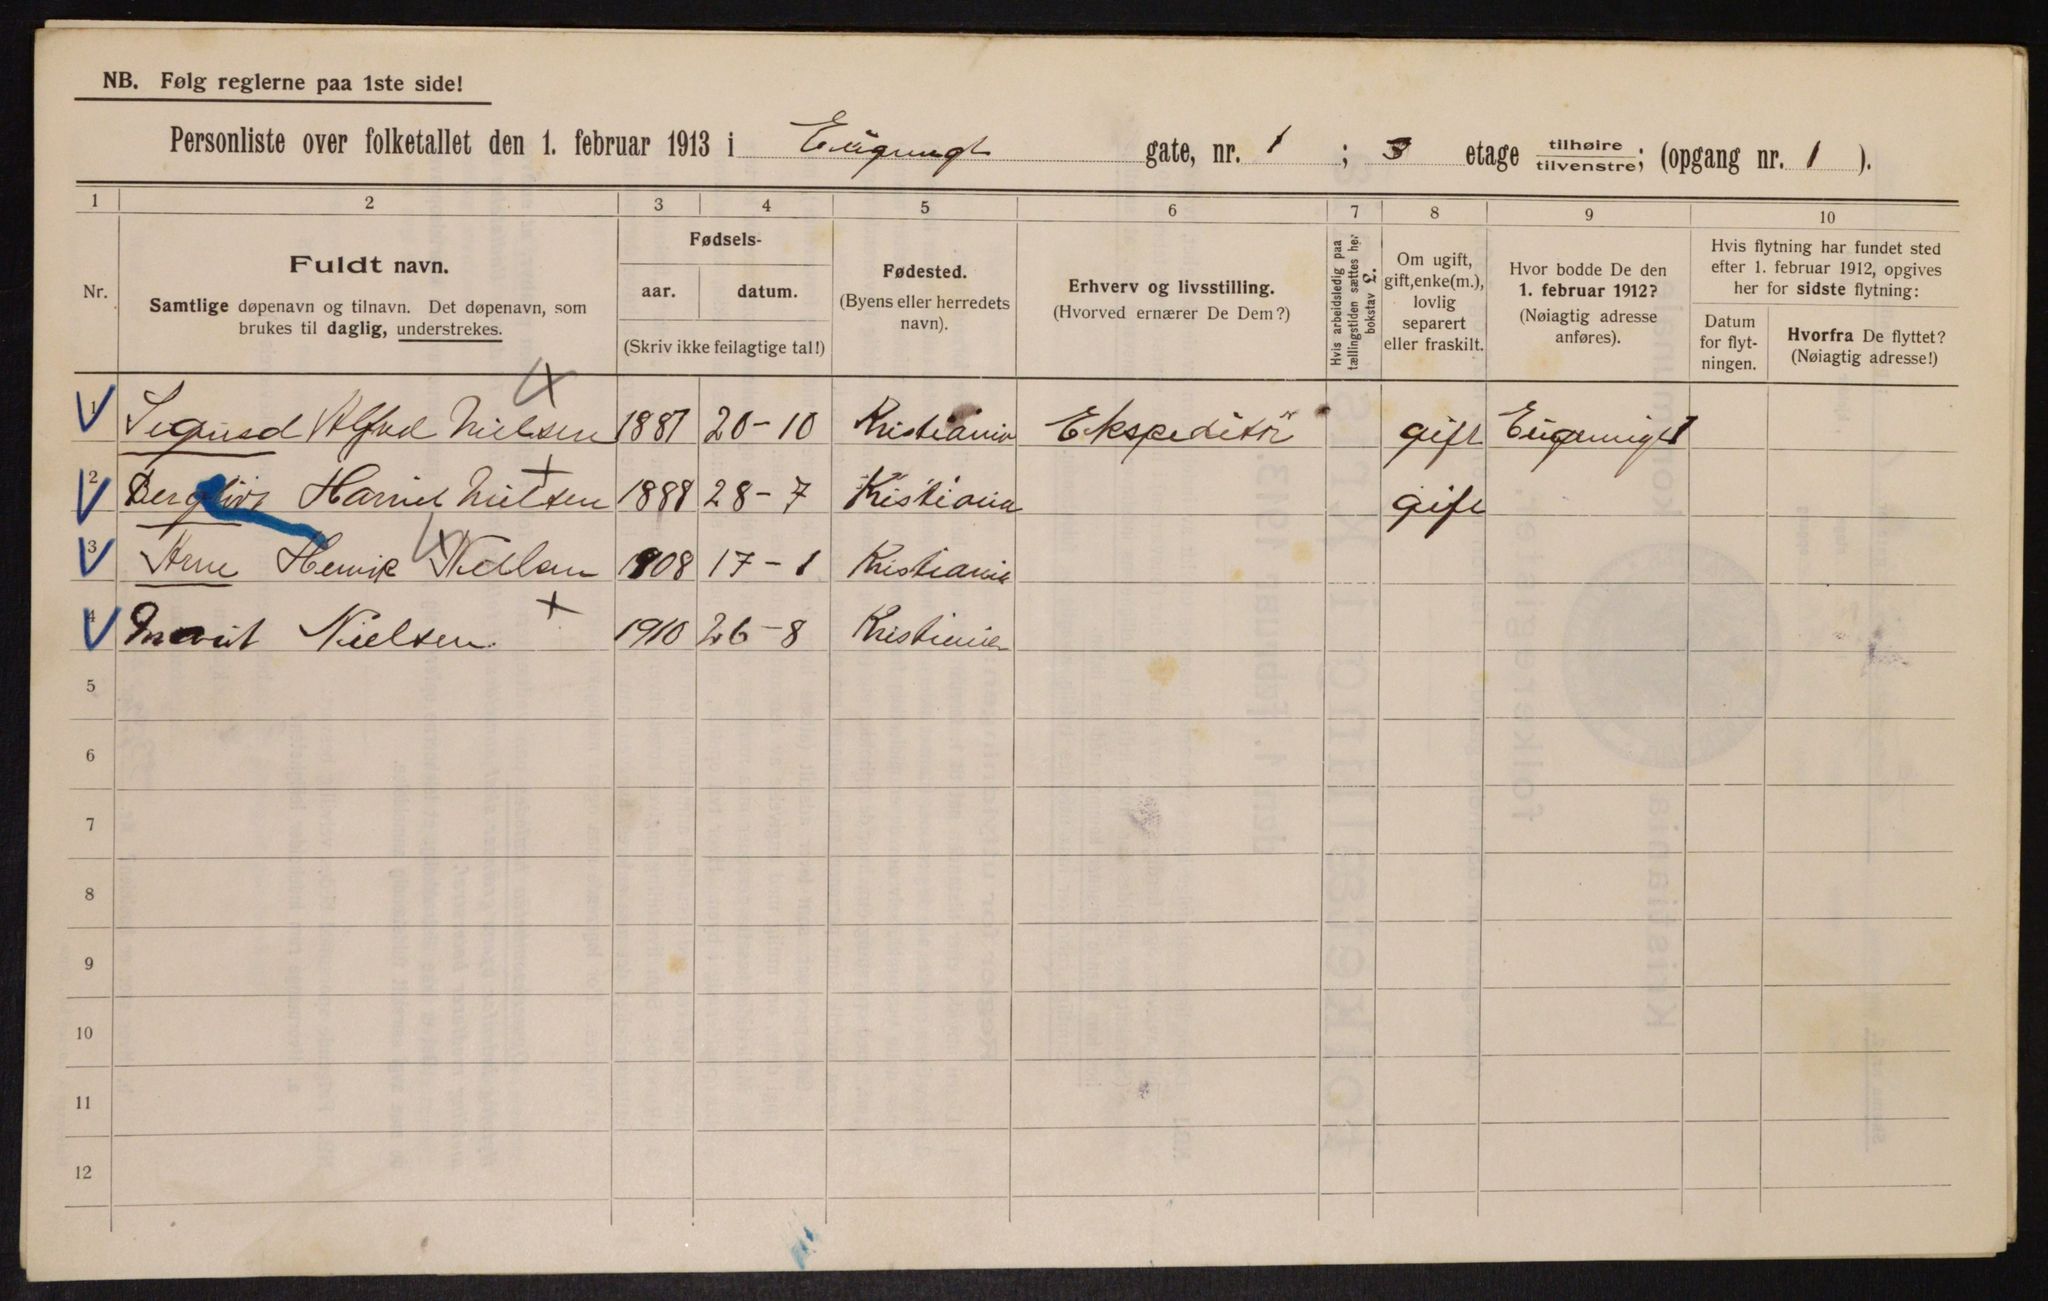 NB. Følg reglerne paa 1ste side!
Personliste over folketallet den 1. februar 1913 i Eugeniegt gate, nr. 1 ; 3 etage tilhøire / tilvenstre; (opgang nr. 1 ).
1 2 3 4 5 6 7 8 9 10
Nr.
Fuldt navn.
Samtlige døpenavn og tilnavn. Det døpenavn, som
brukes til daglig, understrekes.
Fødsels-
aar. datum.
(Skriv ikke feilagtige tal!)
Fødested.
(Byens eller herredets
navn).
Erhverv og livsstilling.
(Hvorved ernærer De Dem?)
Hvis arbeidsledig paa
tællingstiden sættes her
bokstav L.
Om ugift,
gift, enke(m.),
lovlig
separert
eller fraskilt.
Hvor bodde De den
1. februar 1912?
(Nøiagtig adresse
anføres).
Hvis flytning har fundet sted
efter 1. februar 1912, opgives
her for sidste flytning:
Datum
for flyt-
ningen.
Hvorfra De flyttet?
(Nøiagtig adresse!)
1 Sigurd Alfred Nielsen 1887 20-10 Kristiania Ekspeditör gift Eugeniegt 1
2 Bergliot Harriet Nielsen 1888 28-7 Kristiania gift
3 Arne Henrik Nielsen 1908 17-1 Kristiania
4 Nielsen 1910 26-8 Kristiania
5
6
7
8
9
10
11
12